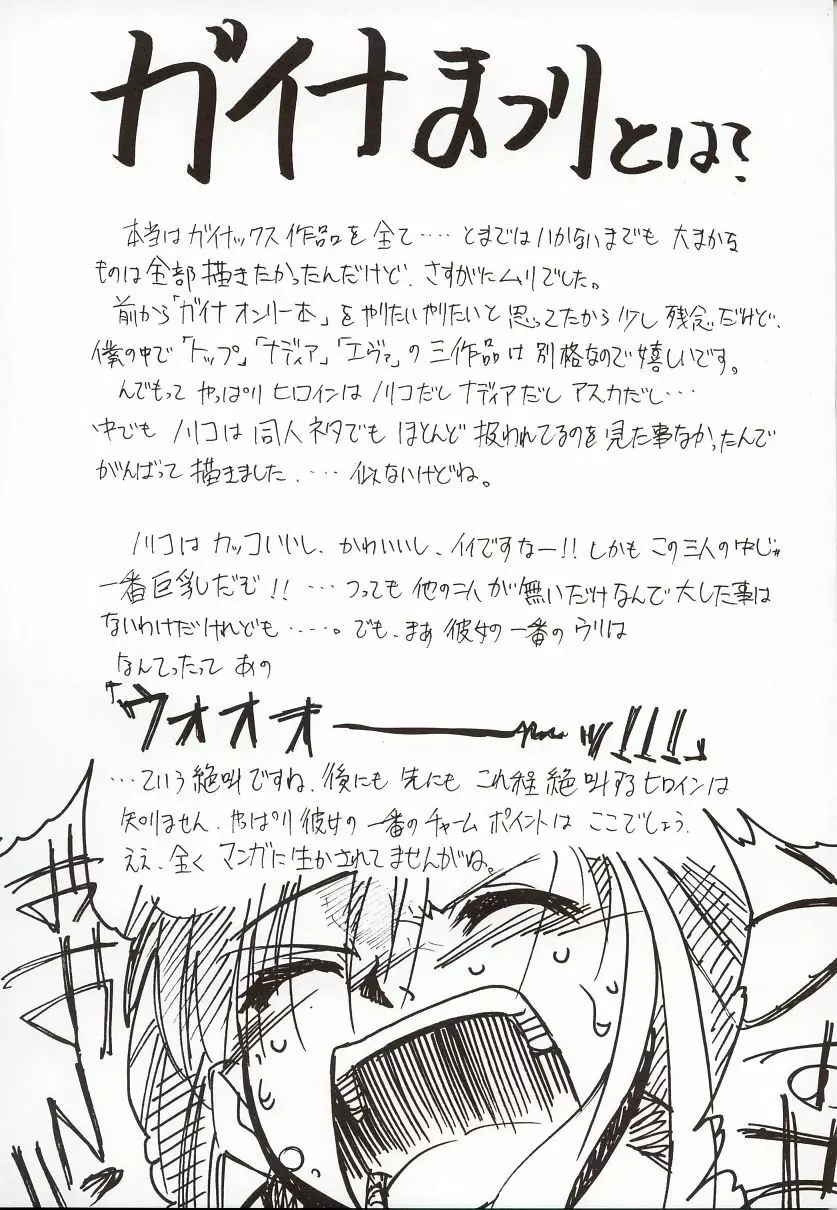 ガイナまつりとは?
本当はガイナックス作品を全て‥‥とまではいかないまでも大まかな
ものは全部描きたかったんだけど、さすがにムリでした。
前から「ガイナオンリー本」をやりたいやりたいと思ってたから少し残念だけど、
僕の中で「トップ」「ナディア」「エヴァ」の三作品は別格なので嬉しいです。
んでもってやっぱりヒロインはノリコだしナディアだしアスカだし‥‥
中でもノリコは同人ネタでもほとんど扱われてるのを見た事なかったんで
がんばって描きました。‥‥似ないけどね。
ノリコはカッコいいし、かわいいし、イイですなー!!しかもこの三人の中じゃ
一番巨乳だぞ!!‥‥つっても他の二人が無いだけなんで大した事は
ないわけだけれども‥‥‥。でも、まあ彼女の一番のウリは
なんてったってあの
「ウォオオ――――ッ!!!」
‥‥ていう絶叫ですね、後にも先にもこれ程絶叫するヒロインは
知りません、やっぱり彼女の一番のチャームポイントはここでしょう、
ええ、全くマンガに生かされてませんがね。